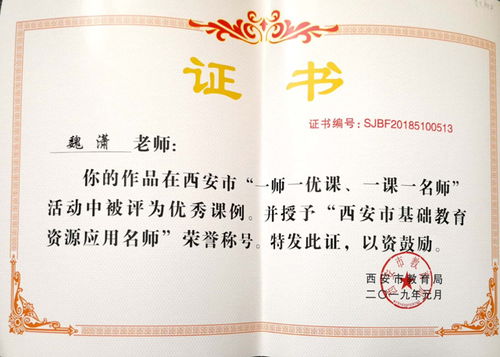 证书
证书编号: SJBF20185100513
魏 潇 老师:
你的作品在西安市“一师一优课、一课一名师”
活动中被评为优秀课例。并授予“西安市基础教育
资源应用名师”荣誉称号。特发此证，以资鼓励。
西安市教育局
二〇一九年元月
西安市教育局